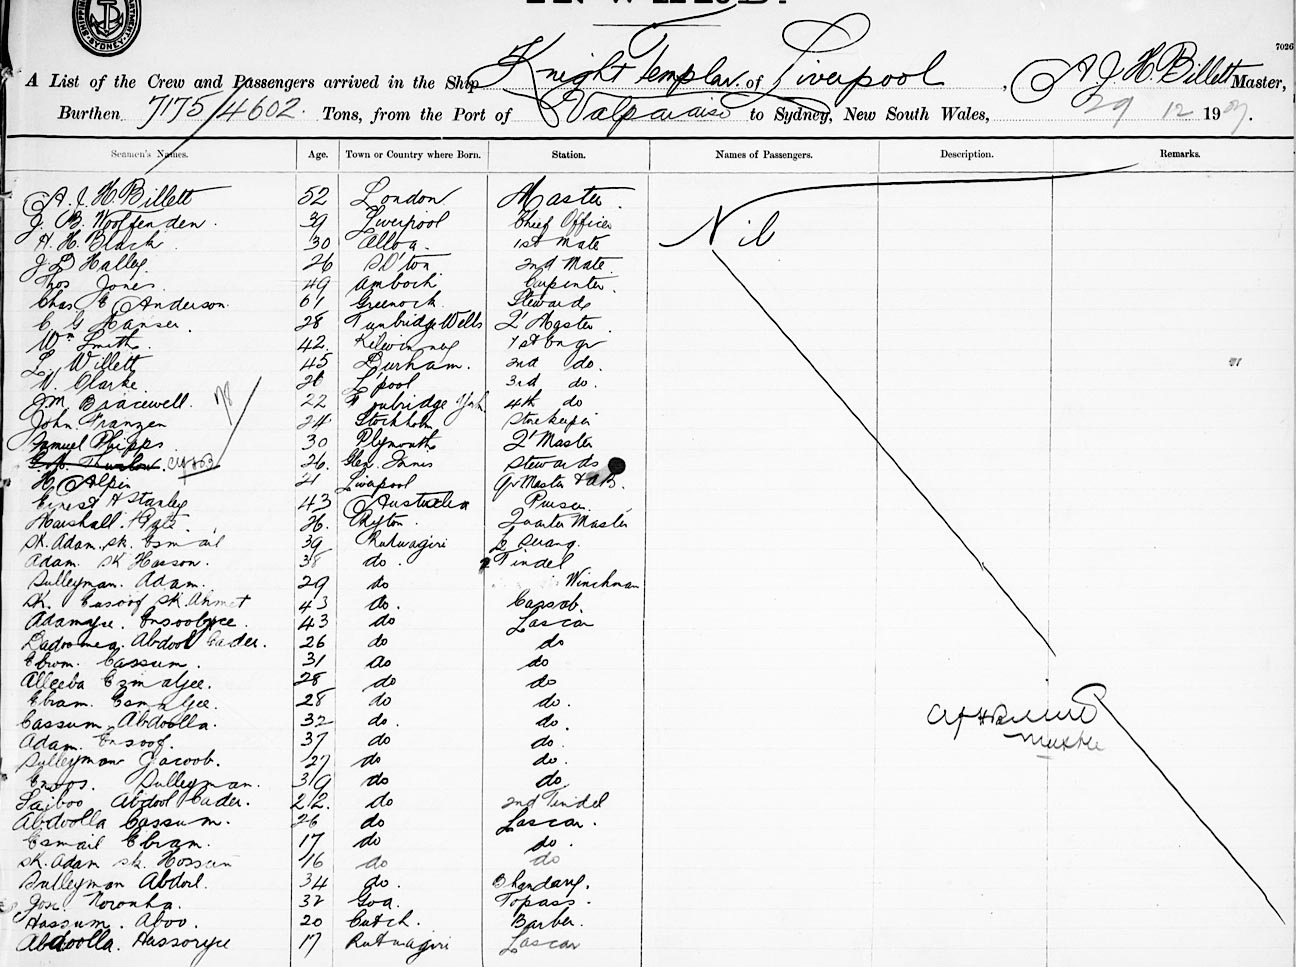 INWARD.
SHIPPING DEPARTMENT SYDNEY
7026
A List of the Crew and Passengers arrived in the Ship Knight Templar of Liverpool, A J H. Billett Master,
Burthen 7175/4602. Tons, from the Port of Valparaiso to Sydney, New South Wales, 29 12 1909.
Seamen's Names. Age. Town or Country where Born. Station. Names of Passengers. Description. Remarks.
A. J. H. Billett 52 London Master. Nil
J. B. Woolfenden. 39 Liverpool Chief Officer
H. H. Black. 30 Alloa. 1st Mate
J D Halley. 26 S.O'ton 2nd Mate.
Thos Jones. 49 Carpenter.
Chas E Anderson. 61 Greenock. Stewards
C G Hanser. 28 Tunbridge Wells Q' Master.
Wm Smith. 42. 1st Engr
L. Willett 45 Durham. 2nd do.
V. Clarke. L'pool 3rd do.
J.M. Bracewell. 22 4th do
John Franzen 24 Stockholm Storekeeper
Samuel Phipps. 30 Plymouth Q' Master
26. Glen Innes Stewards
H. Alpin 21 Liverpool Qr Master & AB.
Ernest H Stanley 43 Australia Purser.
Marshall. 26. Quarter Master
Sk. Adam. Sk. Esmail 39 Rutnagiri Serang.
Adam. Sk Hasson. 38 do. Tindel
Sulleyman. Adam. 29 do Winchman
Sk. Eusoof Sk. Ahmet 43 do. Cassab.
Adamjee. 43 do Lascar
Abdool Cader. 26 do do
Ebram. Cassum. 31 do do
28 do do
Ebram. Esmaljee. 28 do do.
Cassum. Abdoolla. 32 do. do.
Adam. Ensoof. 37 do do.
Sulleyman Jacoob. 27 do do.
Sulleyman. 39 do do.
Laiboo Abdool Cader. 22. do 2nd Tindel
Abdoolla Cassum. 26 do Lascar.
Esmail Ebram. 17 do do.
Sk. Adam Sk. Hossein 16 do do
Sulleyman Abdool. 34 do. Bhandary.
Jose Noronha. 32 Goa. Topass.
Hassum. Aboo. 20 Cutch. Barber.
Abdoolla. Hassonjee 17 Rutnagiri Lascar
AJHBillett
Master